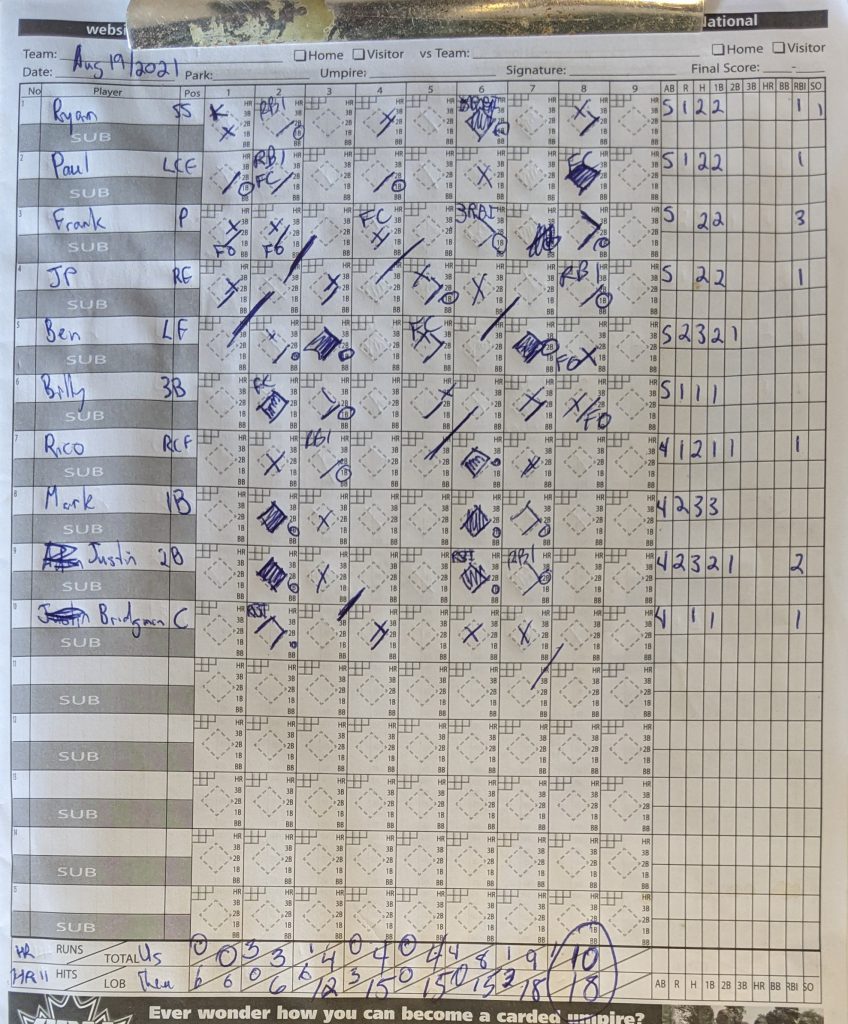 websi
National
Team: □Home □Visitor vs Team: □Home □Visitor
Date: Aug 19/2021 Park: Umpire: Signature: Final Score: -
No Player Pos 1 2 3 4 5 6 7 8 9 AB R H 1B 2B 3B HR BB RBI SO
1 Ryan SS K RBI 5 1 2 2 1 1
SUB
2 Paul LCF RBI FC FC 5 1 2 2 1
SUB
3 Frank P FO FO FC 3RBI 5 2 2 3
SUB
4 JP RF RBI 5 2 2 1
SUB
5 Ben LF FC FO 5 2 3 2 1
SUB
6 Billy 3B FC FO 5 1 1 1
SUB
7 Rico RCF RBI 4 1 2 1 1 1
SUB
8 Mark 1B 4 2 3 3
SUB
9 Justin 2B RBI RBI 4 2 3 2 1 2
SUB
10 Bridgman C RBI 4 1 1 1
SUB
11
SUB
12
SUB
13
SUB
14
SUB
15
SUB
HR RUNS TOTAL Us 0 0 3 3 1 4 0 4 0 4 4 8 1 9 1 10
HR 11 HITS LOB Them 6 6 0 6 6 12 3 15 0 15 0 15 3 18 18 AB R H 1B 2B 3B HR BB RBI SO
Ever wonder how you can become a carded umpire?